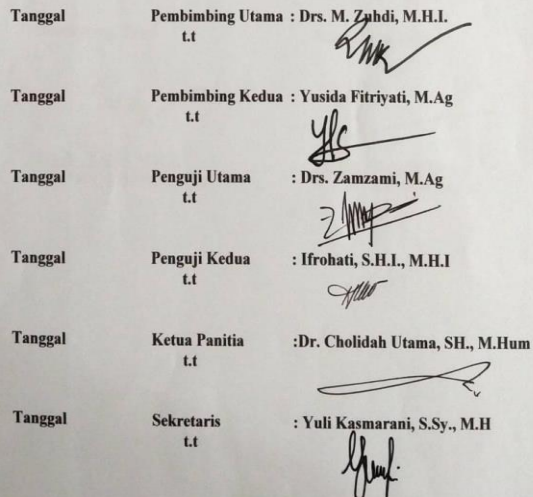 Tanggal Pembimbing Utama : Drs. M. Zuhdi, M.H.I.
t.t
Tanggal Pembimbing Kedua : Yusida Fitriyati, M.Ag
t.t
Tanggal Penguji Utama : Drs. Zamzami, M.Ag
t.t
Tanggal Penguji Kedua : Ifrohati, S.H.I., M.H.I
t.t
Tanggal Ketua Panitia :Dr. Cholidah Utama, SH., M.Hum
t.t
Tanggal Sekretaris : Yuli Kasmarani, S.Sy., M.H
t.t